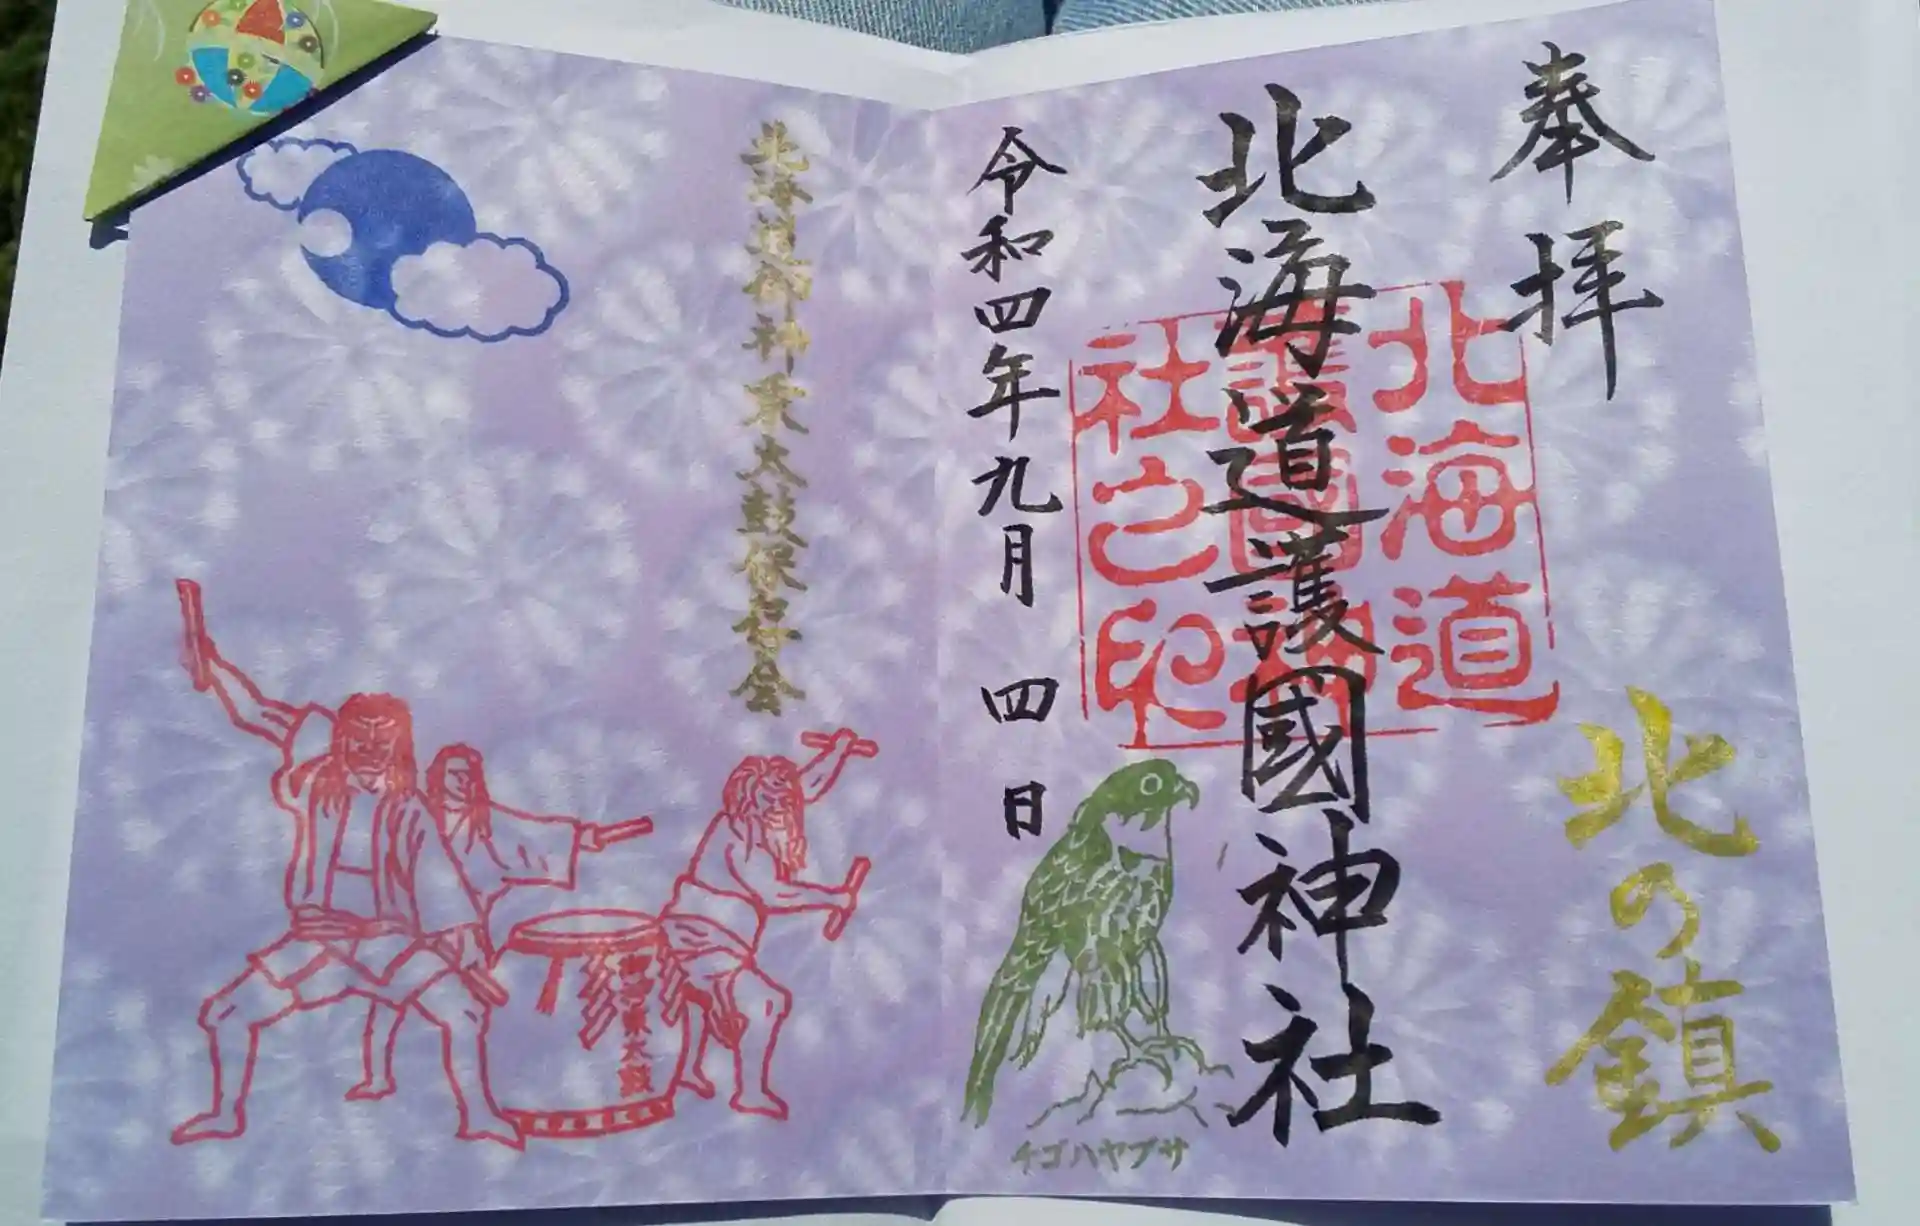 奉拝
北の鎮
北海道護國神社
北海道
護國神
社之印
チゴハヤブサ
令和四年九月四日
北海道御神乗太鼓保存会
御神乗太鼓